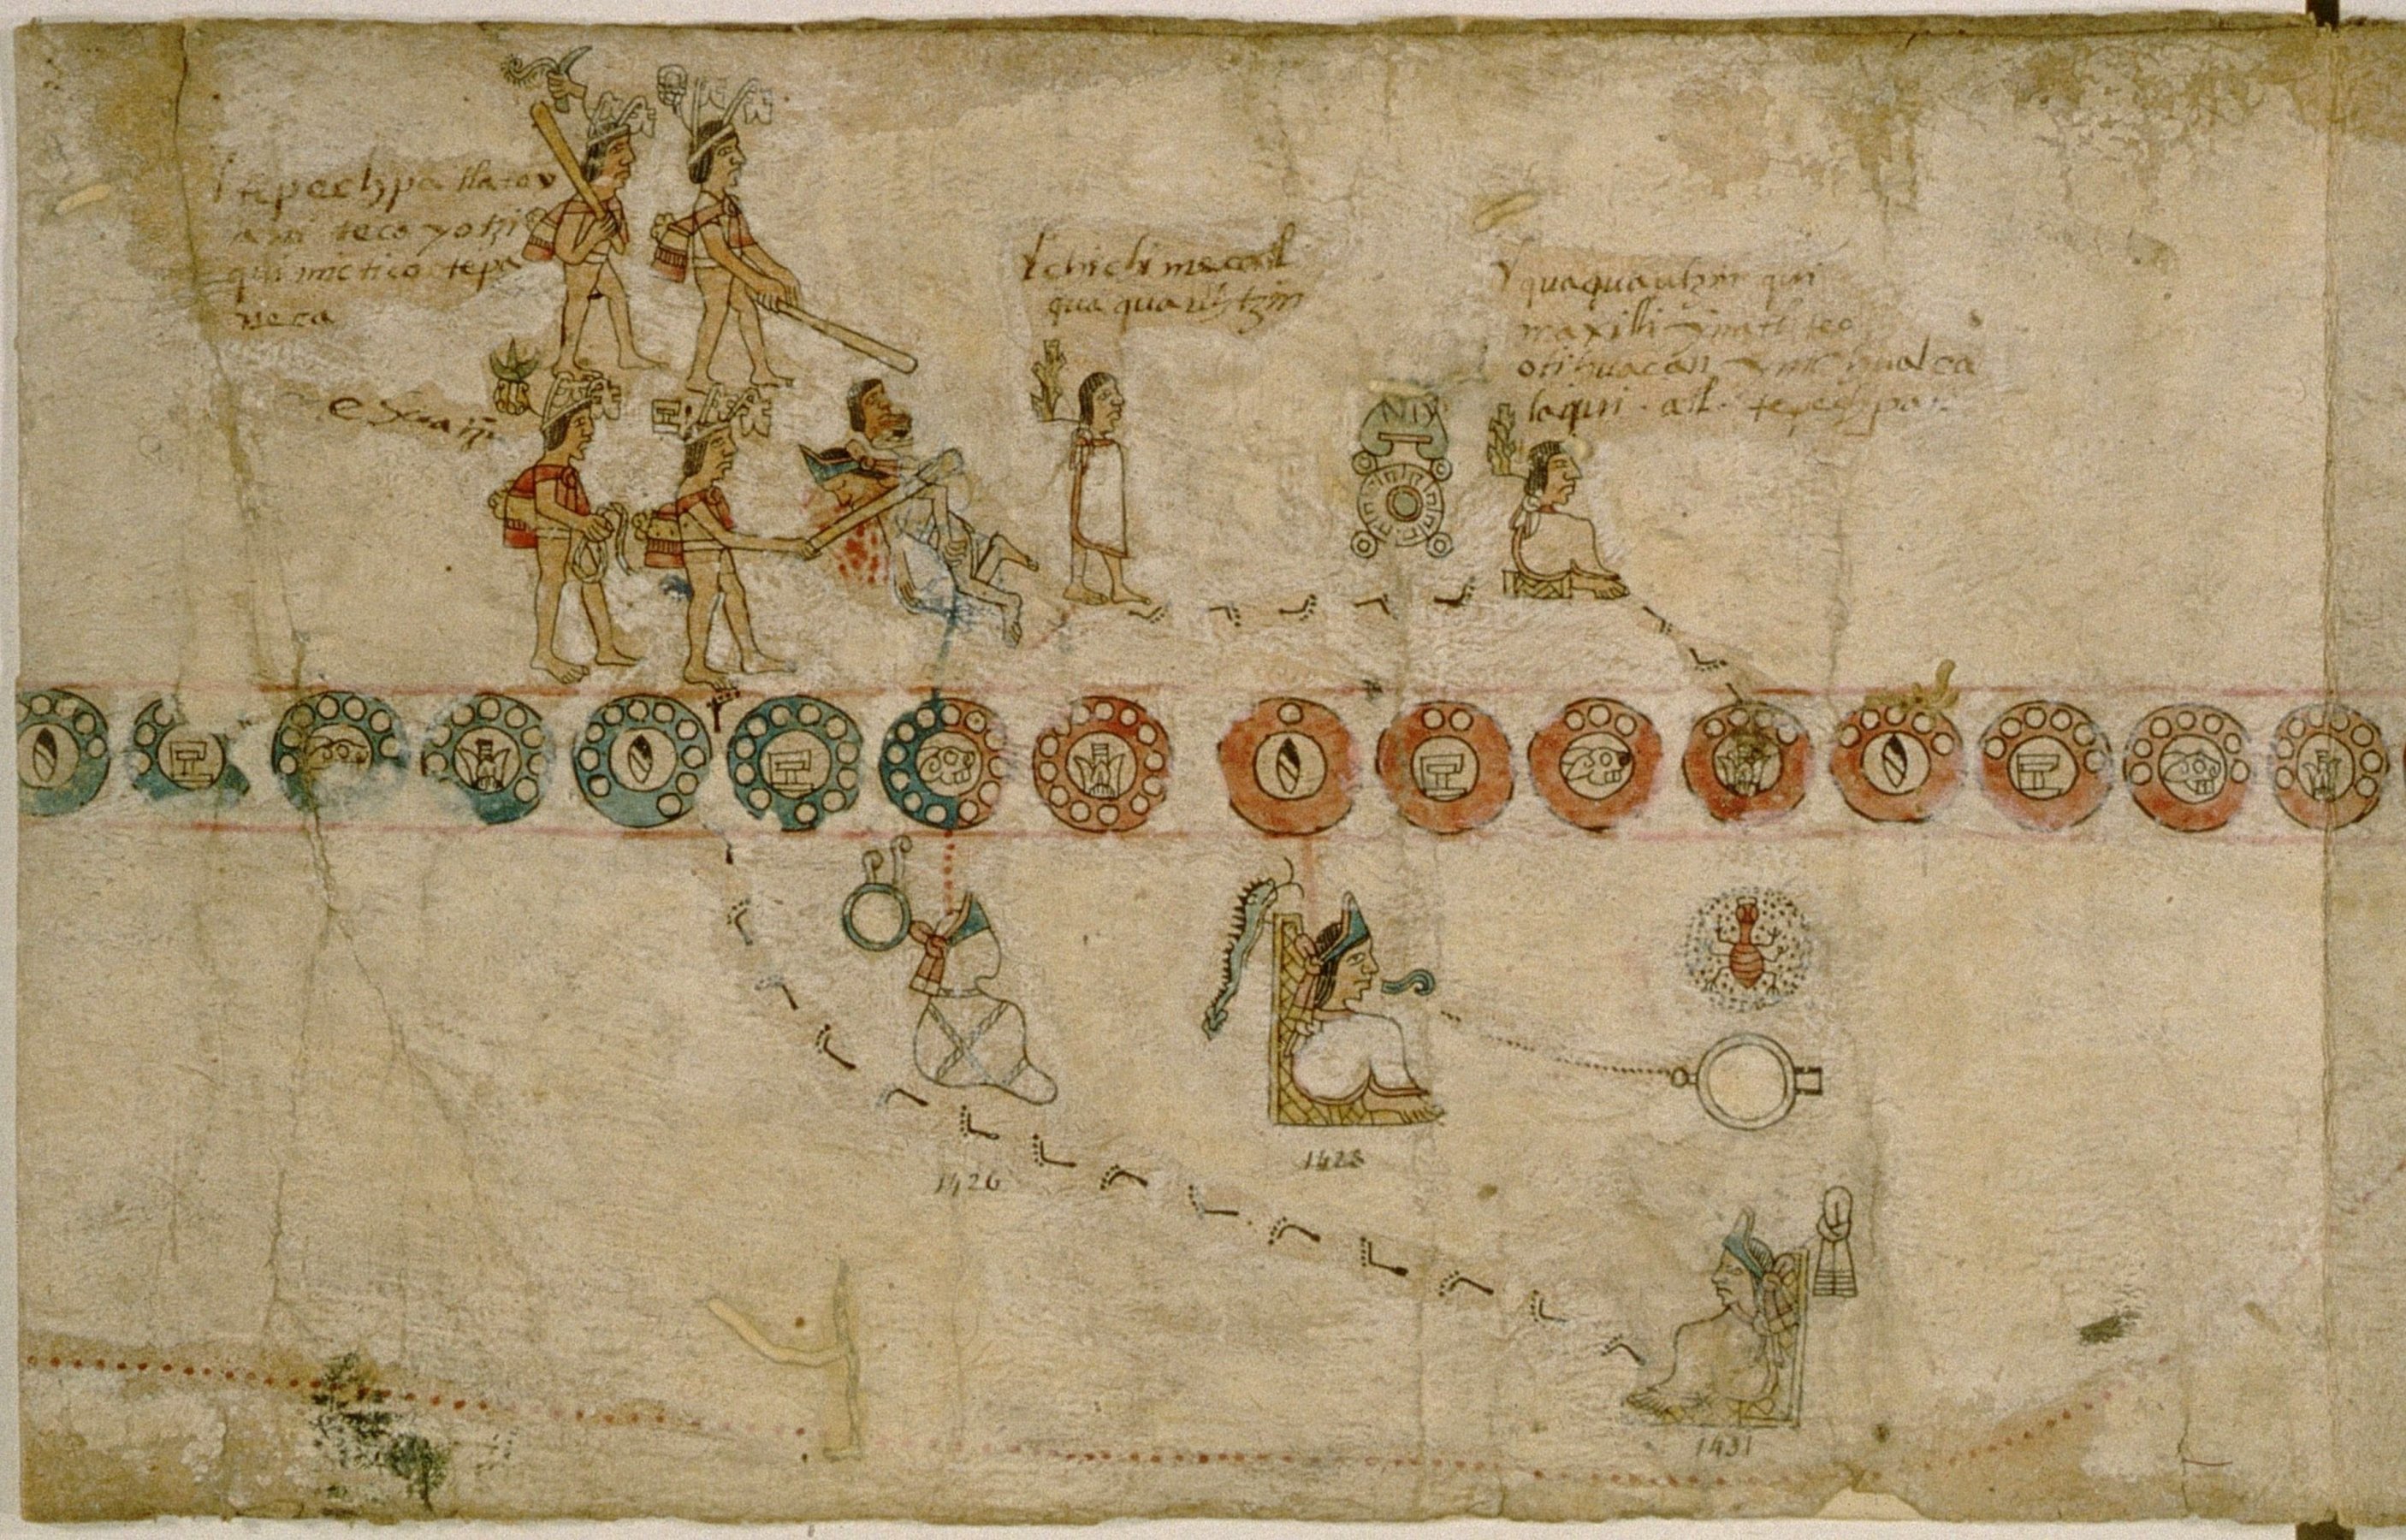 tepechpa tlatou
ani tecoyotzi
quimictico tepa
neca
chichimecatl
quaquauhtzin
quaquauhtzin qui
teo
otihuacan ynic hualca
laqui · atl · tepechpan
1426
1428
1431